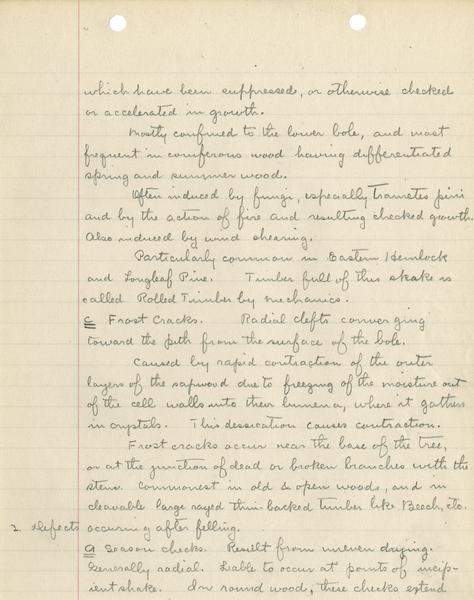 which have been suppressed, or otherwise checked
or accelerated in growth.
Mostly confined to the lower bole, and most
frequent in coniferous wood having differentiated
spring and summer wood.
Often induced by fungi, especially Trametes pini
and by the action of fire and resulting checked growth.
Also induced by wind shearing.
Particularly common in Eastern Hemlock
and Longleaf Pine. Timber full of this shake is
called Rolled Timber by mechanics.
c Frost Cracks. Radial clefts converging
toward the pith from the surface of the bole.
Caused by rapid contraction of the outer
layers of the sapwood due to freezing of the moisture out
of the cell walls into their lumena, where it gathers
in crystals. This dessication causes contraction.
Frost cracks occur near the base of the tree,
or at the junction of dead or broken branches with the
stem. Commonest in old & open woods, and in
cleavable large rayed thin-backed timber like Beech, etc.
2. Defects occuring after felling.
a Season checks. Result from uneven drying.
Generally radial. Liable to occur at points of incip-
ient shake. In round wood, these checks extend